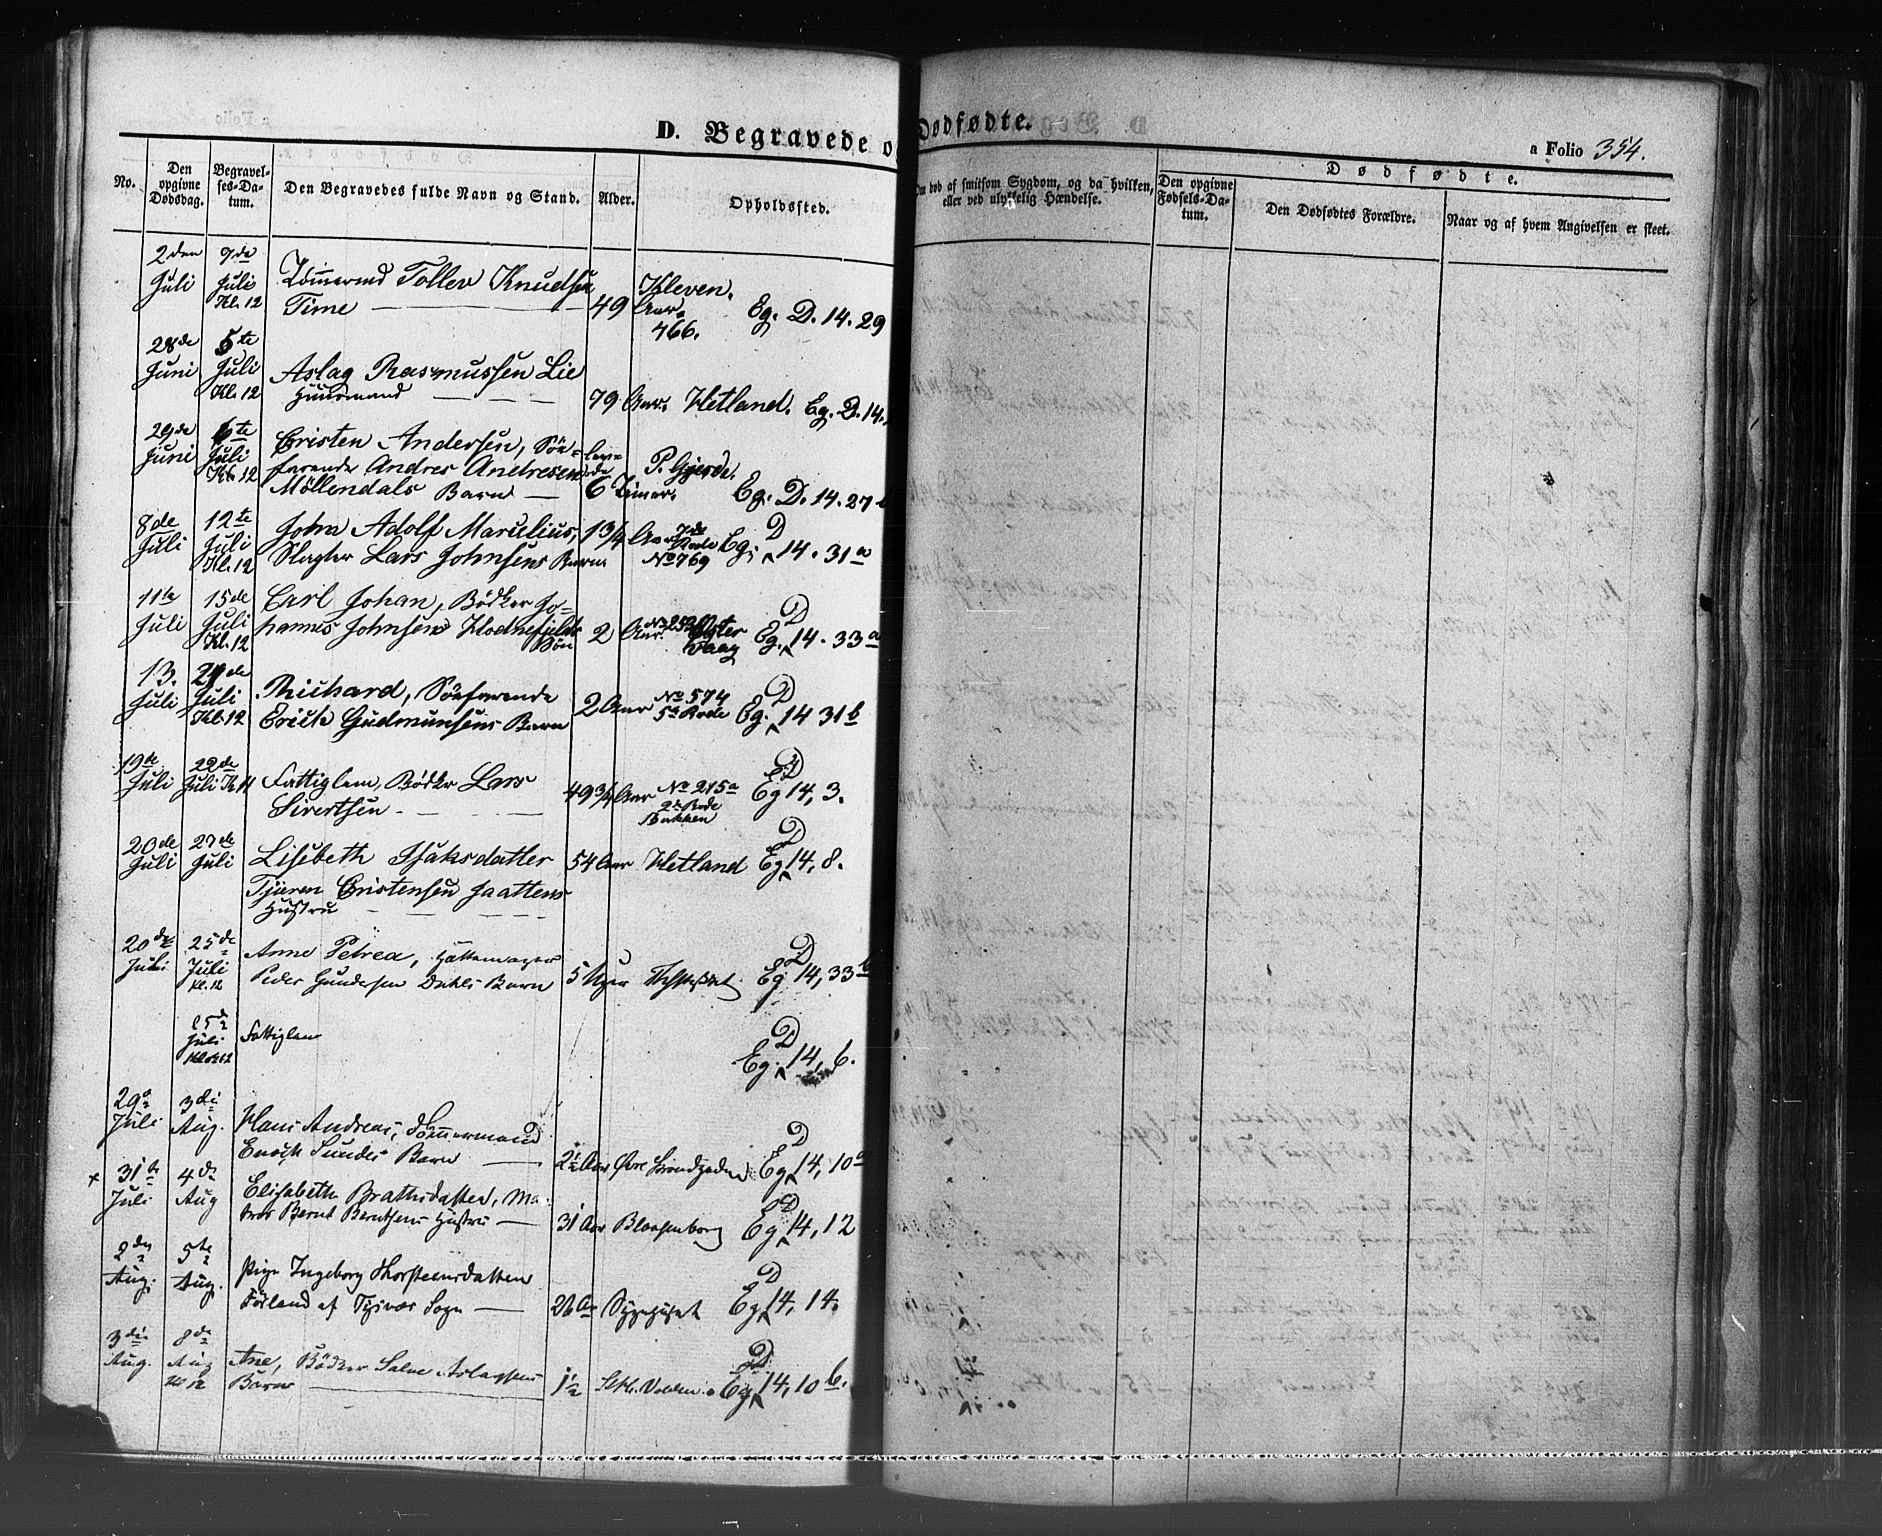 D. Begravede o
Dødfødte.
a Folio 354.
No.
Den opgivne Dødsdag.
Begravelses-Datum.
Den Begravedes fulde Navn og Stand.
Alder.
Opholdssted.
Om død af smitsom Sygdom, og da hvilken, eller ved ulykkelig Hændelse.
Dødfødte.
Den opgivne Fødsels-Datum.
Den Dødfødtes Forældre.
Naar og af hvem Angivelsen er skeet.
2den 9de
Juli Juli Tømermd Tollev Knudsen Kleven.
Kl. 12 Time 49 Aar 466. Eg. D. 14. 29
28de 5te
Juni Juli Aslag Rasmussen Lie
Kl. 12 Huusmand 79 Aar. Hetland. Eg. D. 14.
29de 6te Cristen Andersen, Søe-
Juni Juli farende Andres Andresen P. Gjerde
Kl. 12 Möllendals Barn 6 Timer. Eg. D. 14. 27
8de 12te John Adolf Marcelius, 1 3/4 Aar 7de Rode Eg. D 14. 31a
Juli Juli Slagter Lars Johnsens Barn No 769
Kl. 12
11te 15de Carl Johan, Bödker Jo-
Juli Juli hannes Johnsens Hodnefjelds 2 Aar. No 252 Øster Vaag Eg. D 14. 33a
Kl. 12 Søn
13. 21de
Juli Juli Richard, Söefarende 2 Aar No 574
Kl. 12 Erich Gudmunsens Barn 5te Rode Eg. D 14 31b
19te 22de
Juli Juli Kl. 11 Fattiglem, Bödker Lars 49 3/4 Aar No 215a Eg D 14, 3.
Sivertsen 2de Rode Bakken
20de 27de
Juli Juli Lisebeth Isaksdatter 54 Aar Hetland Eg D 14, 8.
Tjæren Cristensen Jaattens
Hustru
20de 25de Anne Petrea, Hattemager
Juli Juli Peder Gundersen Dahls Barn 5 Uger Eg D 14, 33b
Kl. 12
25de
Juli Fattiglem
Kl. 12 Eg. D 14, 6.
29de 3die
Juli Aug. Hans Andreas, Tømmermand
Enoch Sundes Barn 2 1/2 Aar Øvre Strandgaden Eg D 14, 10a
x 31te 4de
Juli Aug Elisabeth Brathsdatter, Ma-
tros Bernt Berntsens Hustru 31 Aar Blaasenborg Eg D 14, 12
2den 5te
Aug. Aug. Pige Ingeborg Thorsteensdatter
Førland af Tysvær Sogn 26 Aar Sygehuset Eg D 14, 14.
3die 8de
Aug. Aug Ane, Bödker Salve Aslagsens
Kl 12 Barn 1 1/2 Eg D 14, 10 b.